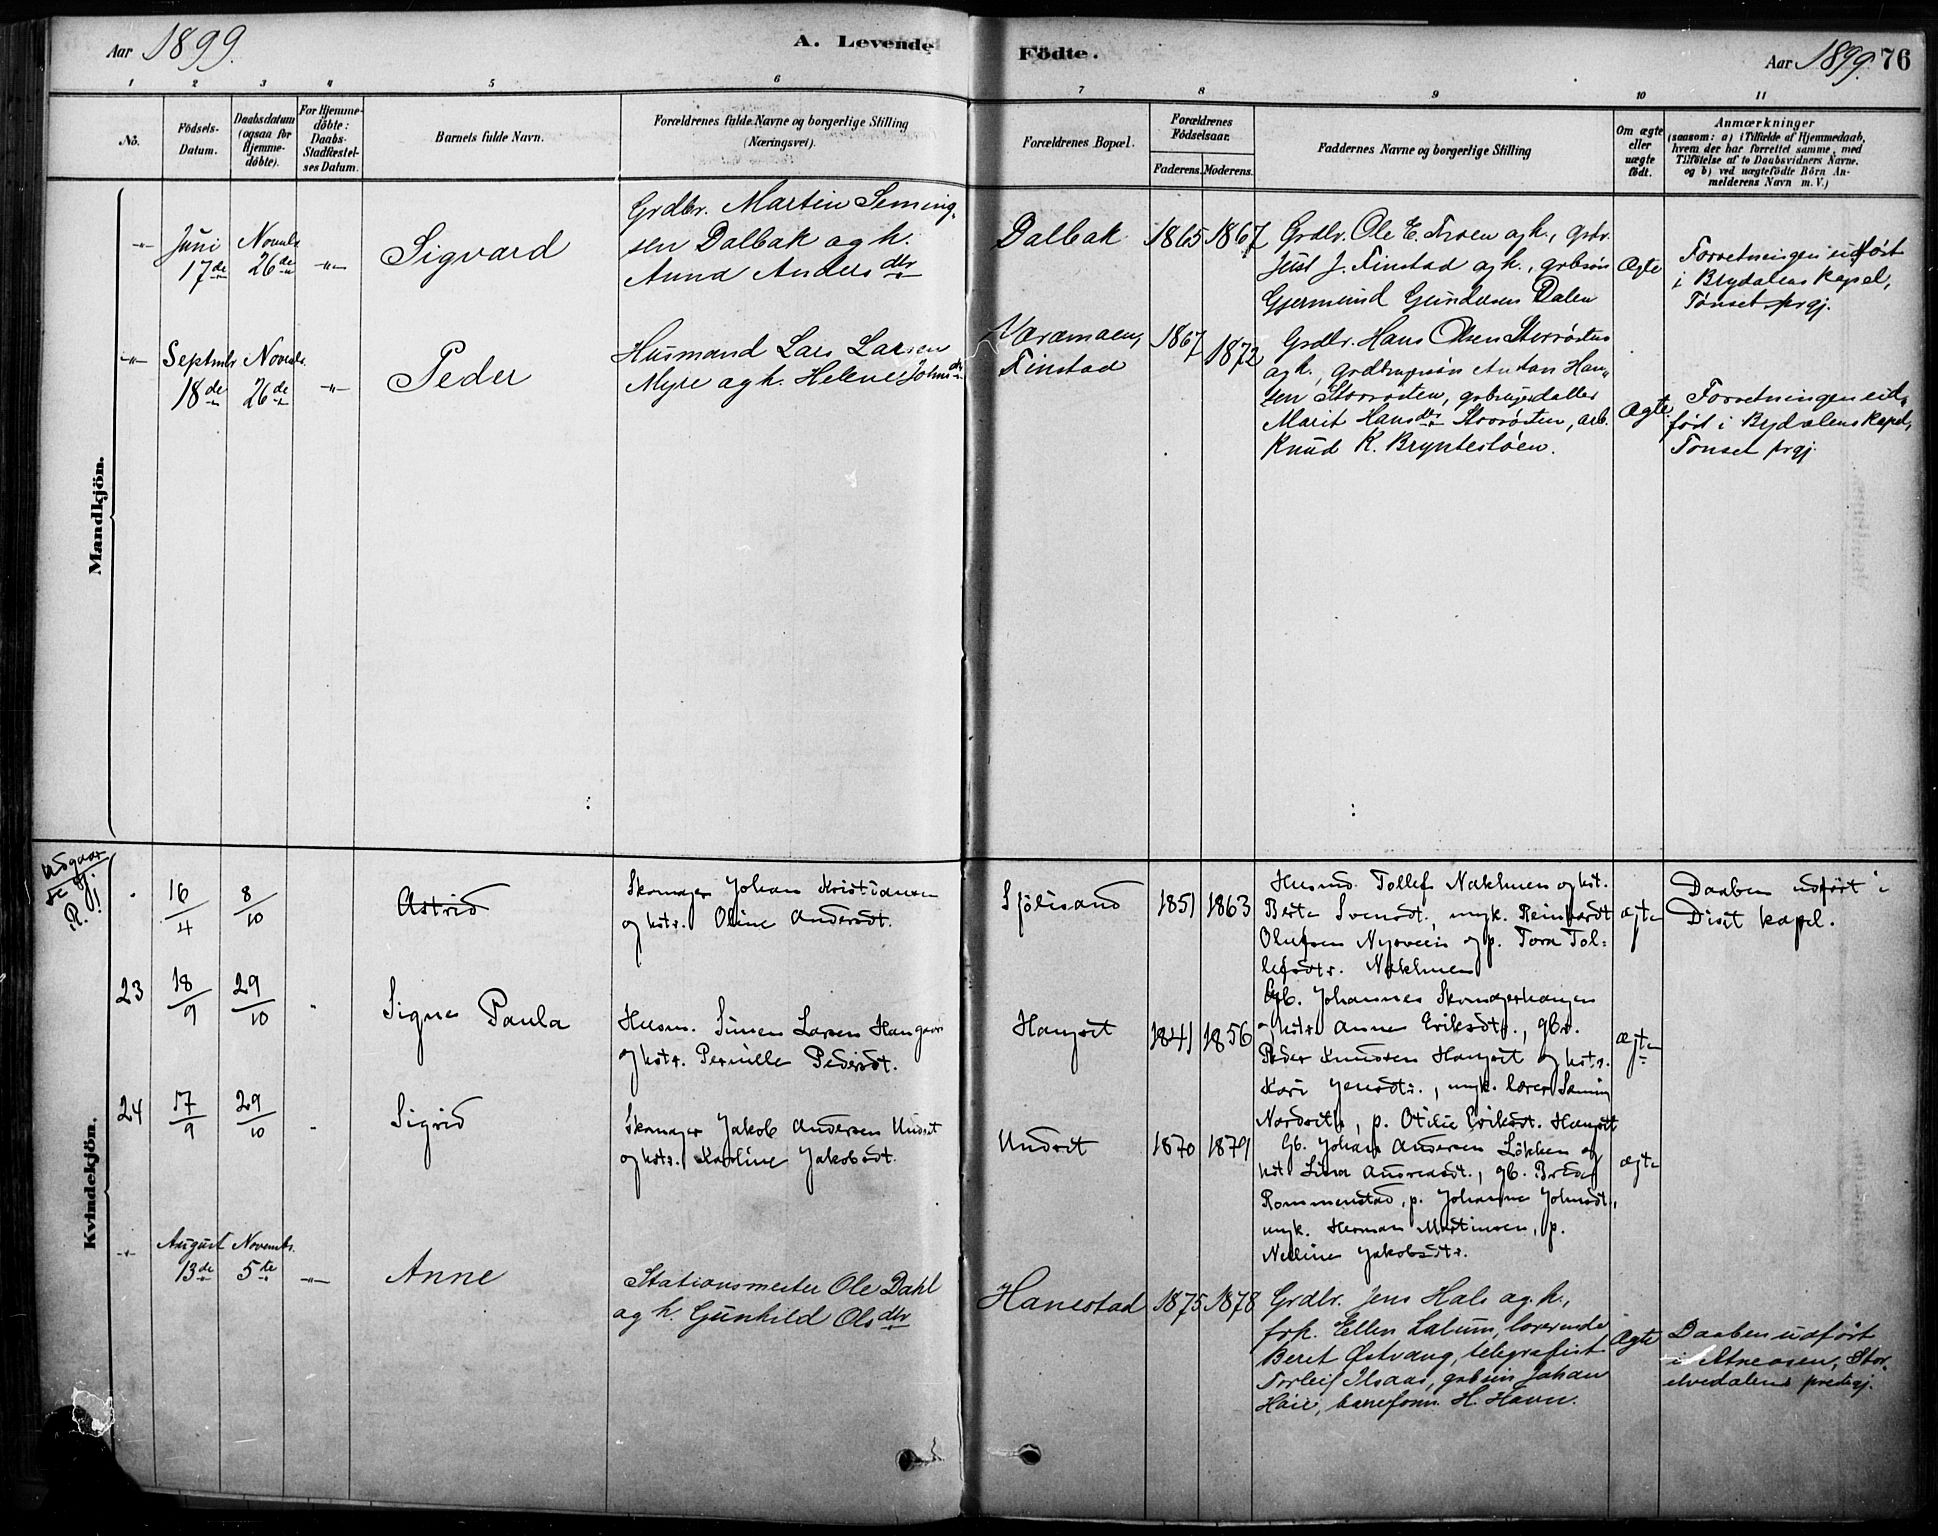 Aar 1899.
A. Levende Födte.
Aar 1899. 76
1 2 3 4 5 6 7 8 9 10 11
No.
Födsels-Datum.
Daabsdatum (ogsaa for Hjemme-döbte).
For Hjemme-döbte: Daabs-Stadfæstel-ses Datum.
Barnets fulde Navn.
Forældrenes fulde Navne og borgerlige Stilling (Næringsvei).
Forældrenes Bopæl.
Forældrenes Födselsaar.
Faderens. Moderens.
Faddernes Navne og borgerlige Stilling
Om ægte eller uægte födt.
Anmærkninger
(saasom: a) i Tilfælde af Hjemmedaab,
hvem der har forrettet samme, med
Tilföielse af to Daabsvidners Navne.
og b) ved uægtefödte Börn An-
melderens Navn m. V.)
Mandkjön.
-"- Juni 17de
Novembr. 26de
-"-
Sigvard
Grdbr. Martin Seming-
sen Dalbak og h.
Anna Andersdtr
Dalbak
1865 1867
Grdbr. Ole E. Troen og h., grdr.
Just J. Finstad og h., grbsøn
Gjermund Gundersen Dalen
Ægte
Forretningen udført
i Brydalens kapel,
Tønset prgj.
-"- Septmbr 18de
Novembr. 26de
-"-
Peder
Husmand Lars Larsen
Myre og h. Helene Johnsdtr
Finstad
1867 1872
Grdbr. Hans Olsen Storrøsten
og h., grdbrugersøn Anton Han-
sen Storrøsten, gbrugerdatter
Marit Hansdtr Storrøsten, arb.
Knud K. Bryntestøen.
Ægte
Forretningen ud-
ført i Brydalens kapel,
Tønset prgj.
Kvindekjön.
16/4 8/10
Astrid
Skomager Johan Kristiansen
og hstr. Oline Andersdt.
Sjølisand
1851 1863
Husmd. Tollef Nakkmen og hst.
Berte Svensdt., ungk. Reinhardt
Olufsen Nysveen og p. Tora Tol-
lefsdtr. Nakkmen
ægte
Daaben udført i
Diset kapel.
23 18/9 29/10
Signe Paula
Husm. Simen Larsen Hangaar
og hstr. Pernille Pedersdt.
Hangset
1841 1856
Gb. Johannes Skomagerhaugen
og hstr. Anne Eriksdtr., gbr.
Peder Knudsen Hangset og hstr.
Kari Jensdtr., ungk. lærer Seming
Nordset, p. Otilie Eriksdt. Hangset
ægte
24 17/9 29/10
Sigrid
Skomager Jakob Andersen Undset
og hstr. Karoline Jakobsdt.
Undset
1870 1879
Gb. Johan Andersen Løkken og
hst. Lina Andreasdt., gb. Brede
Rommenstad, p. Johanne Johnsdt.,
ungk. Herman Martinsen, p.
Nelline Jakobsdtr.
ægte
-"- August 13de
Novembr. 5te
-"-
Anne
Stationsmester Ole Dahl
og h. Gunhild Olsdtr
Hanestad
1875 1878
Grdbr. Jens Hals og h.,
frk. Ellen Lalum, lærerinde
Beret Østvang, telegrafist
Torleif Ilsaas, gbsøn Johan
Høie, baneform. H. Havn.
Ægte
Daaben udført
i Atneosen, Stor-
elvedalens prestegj.